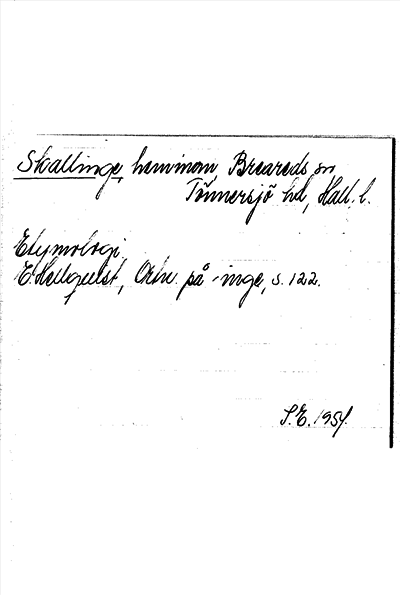 Skallinge, hemman, Breareds sn
Tönnersjö hd, Hall. l.
Etymologi.
E. Hellquist, Ortn. på -inge, s. 122.
S.E. 1951.